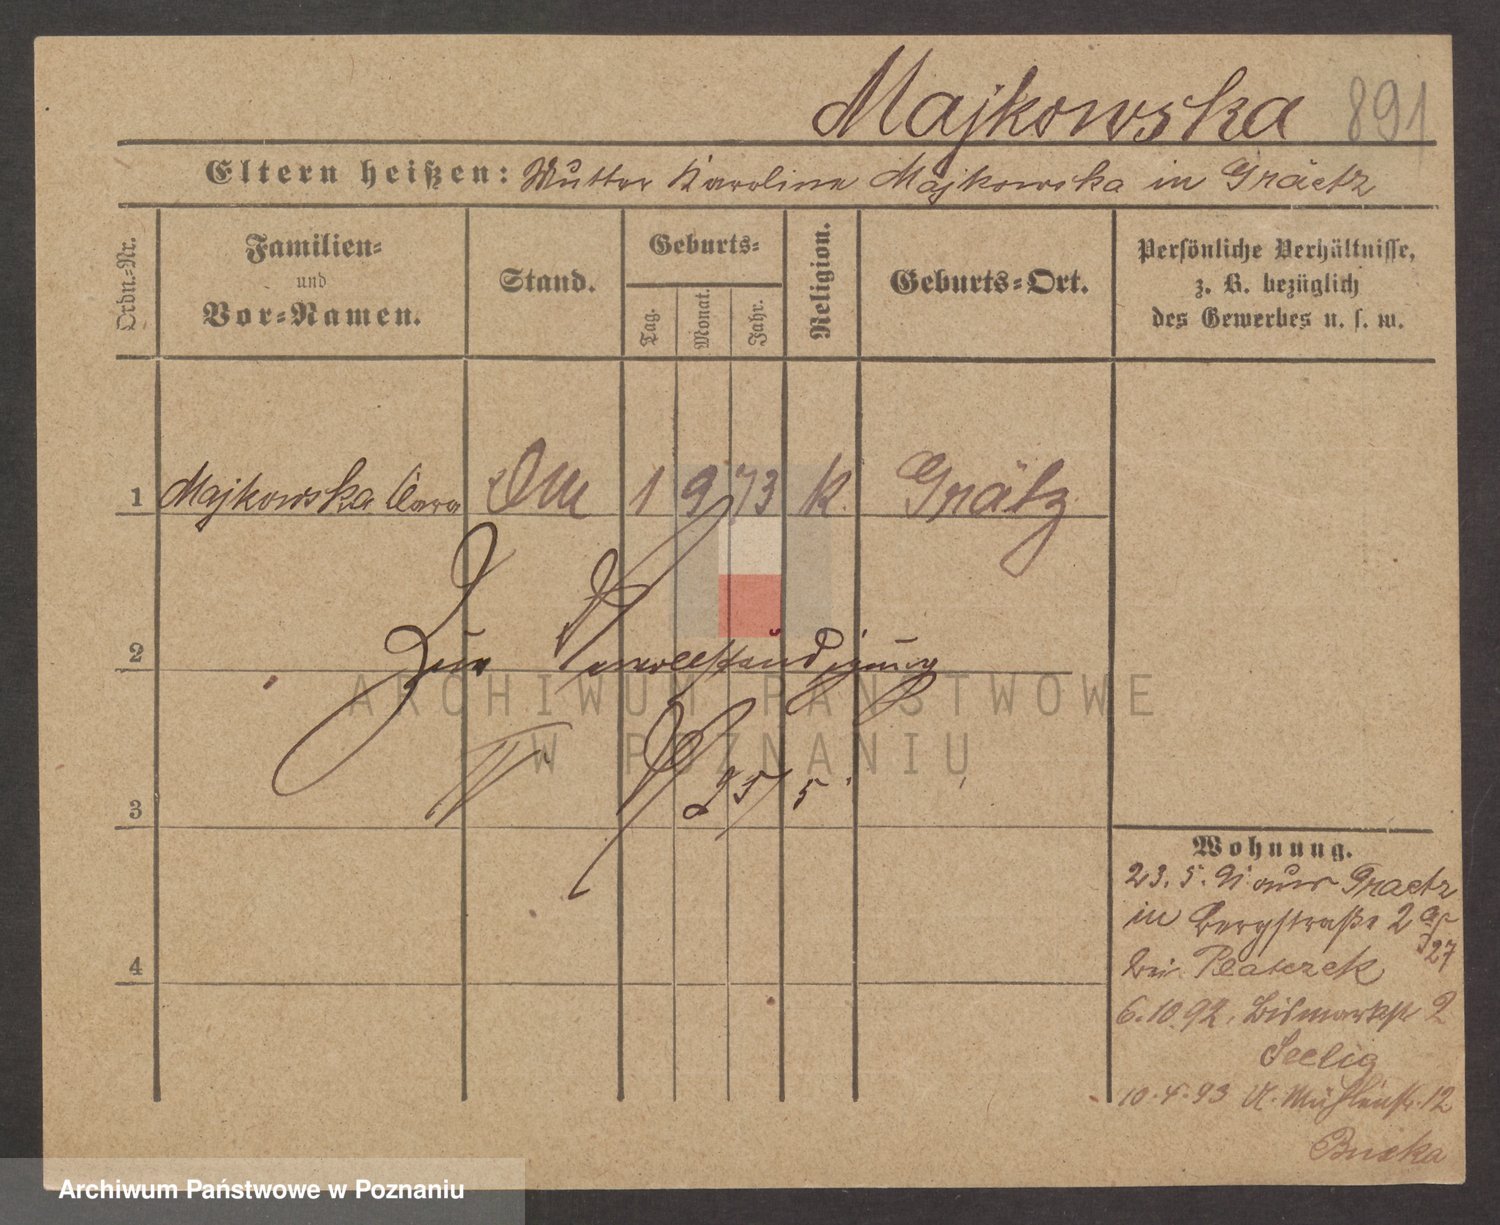 Majkowska 891
Eltern heißen: Mutter Karoline Majkowska in Graetz
Ordn.-Nr.
Familien-
und
Vor-Namen.
Stand.
Geburts-
Tag.
Monat.
Jahr.
Religion.
Geburts-Ort.
Persönliche Verhältnisse,
z. B. bezüglich
des Gewerbes u. s. w.
1 Majkowska Clara 1 9 73 k. Grätz
Zur Vervollständigung
2
ARCHIWUM PAŃSTWOWE
W POZNANIU
25/5
3
Wohnung.
23. 5. 91 aus Graetz
in Bergstraße 2
27
bei
4
6. 10. 92. Bismarkstr 2
Seelig
10. 4. 93 Mühlenstr. 12
Archiwum Państwowe w Poznaniu